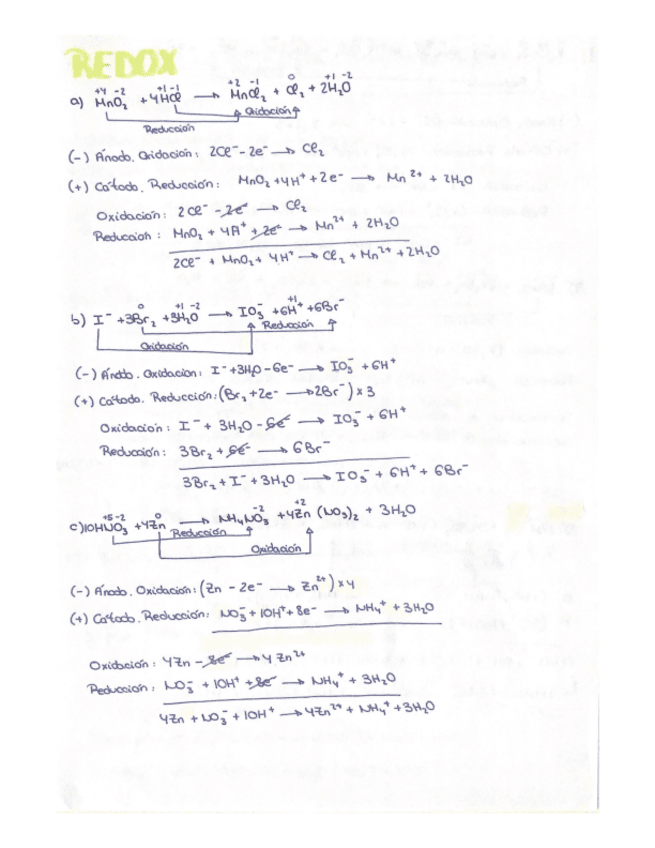 REDOX
+4 -2 +1 -1 +2 -1 0 +1 -2
a) MnO₂ + 4HCl → MnCl₂ + Cl₂ + 2H₂O
Oxidación
Reducción
(-) Ánodo. Oxidación: 2Cl⁻ - 2e⁻ → Cl₂
(+) Cátodo. Reducción: MnO₂ + 4H⁺ + 2e⁻ → Mn²⁺ + 2H₂O
Oxidación: 2Cl⁻ - 2e⁻ → Cl₂
Reducción: MnO₂ + 4H⁺ + 2e⁻ → Mn²⁺ + 2H₂O
2Cl⁻ + MnO₂ + 4H⁺ → Cl₂ + Mn²⁺ + 2H₂O
0 +1 -2 +1
b) I⁻ + 3Br₂ + 3H₂O → IO₃⁻ + 6H⁺ + 6Br⁻
Reducción
Oxidación
(-) Ánodo. Oxidación: I⁻ + 3H₂O - 6e⁻ → IO₃⁻ + 6H⁺
(+) Cátodo. Reducción: (Br₂ + 2e⁻ → 2Br⁻) x 3
Oxidación: I⁻ + 3H₂O - 6e⁻ → IO₃⁻ + 6H⁺
Reducción: 3Br₂ + 6e⁻ → 6Br⁻
3Br₂ + I⁻ + 3H₂O → IO₃⁻ + 6H⁺ + 6Br⁻
+5 -2 0 -2 +2
c) 10HNO₃ + 4Zn → NH₄NO₃ + 4Zn (NO₃)₂ + 3H₂O
Reducción
Oxidación
(-) Ánodo. Oxidación: (Zn - 2e⁻ → Zn²⁺) x 4
(+) Cátodo. Reducción: NO₃⁻ + 10H⁺ + 8e⁻ → NH₄⁺ + 3H₂O
Oxidación: 4Zn - 8e⁻ → 4Zn²⁺
Reducción: NO₃⁻ + 10H⁺ + 8e⁻ → NH₄⁺ + 3H₂O
4Zn + NO₃⁻ + 10H⁺ → 4Zn²⁺ + NH₄⁺ + 3H₂O